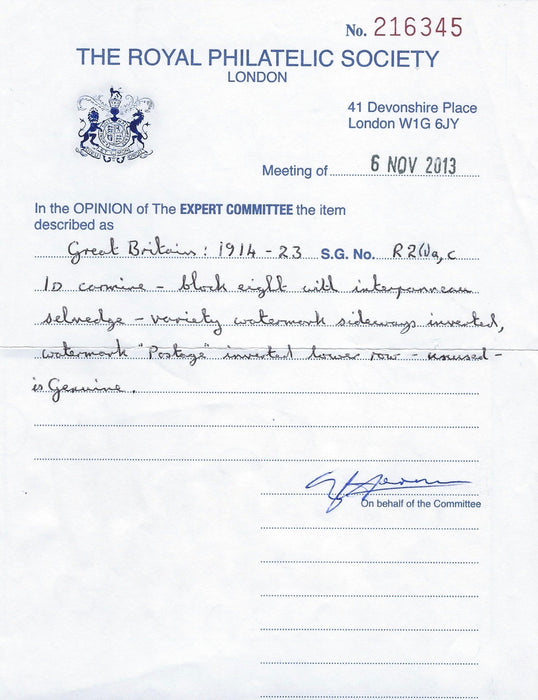 No. 216345
THE ROYAL PHILATELIC SOCIETY
LONDON
41 Devonshire Place
London W1G 6JY
Meeting of 6 NOV 2013
In the OPINION of The EXPERT COMMITTEE the item
described as
Great Britain: 1914 - 23 S.G. No. R2(1)a,c
1D carmine - block eight with interpanneau
selvedge - variety watermark sideways inverted,
watermark "Postage" inverted lower row - unused -
is Genuine.
On behalf of the Committee